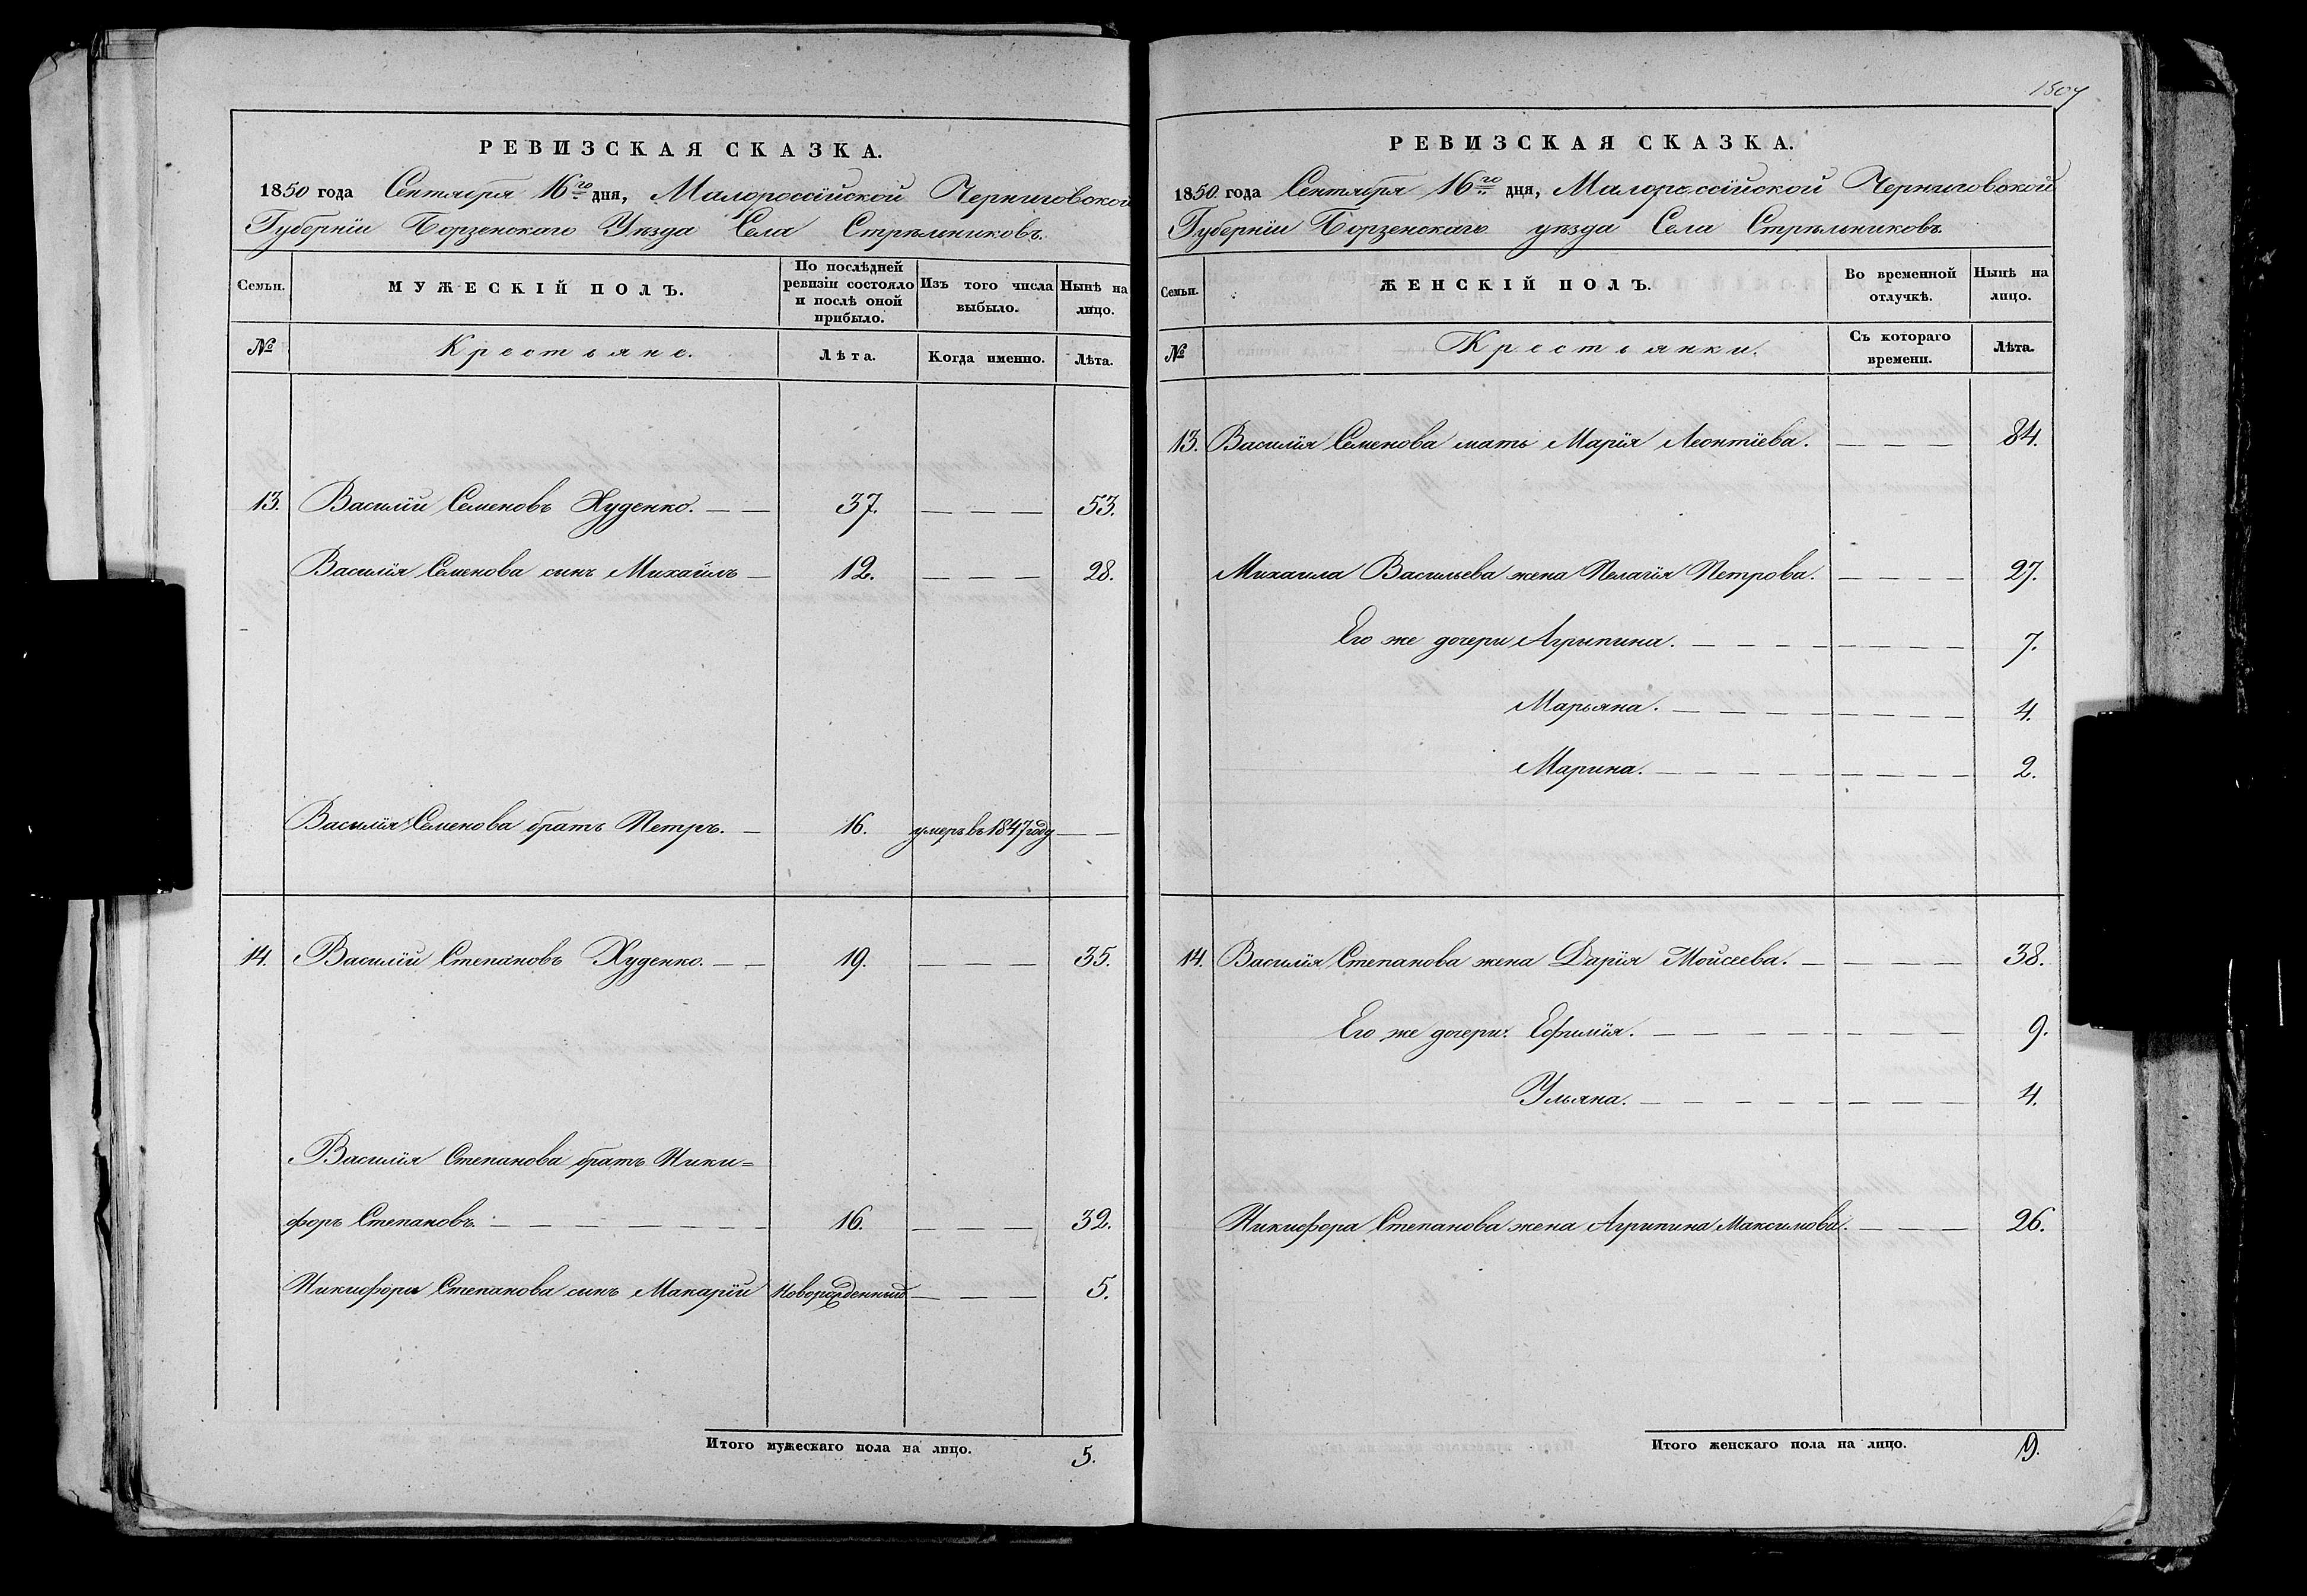 РЕВИЗСКАЯ СКАЗКА.
1850 года Сентября 16го дня, Малороссійской Черниговской
Губерніи Борзенскаго Уѣзда Села Стрѣльниковъ.
Семьи. МУЖЕСКІЙ ПОЛЪ. По послѣдней ревизіи состояло и послѣ оной прибыло. Изъ того числа выбыло. Нынѣ на лицо.
№ Крестьяне. Лѣта. Когда именно. Лѣта.
13. Василій Семеновъ Худенко. — — 37. — — — 53.
Василія Семенова сынъ Михайлъ — 12. — — — 28.
Василія Семенова братъ Петръ. — 16. умеръ въ 1847 году — —
14. Василій Степановъ Худенко. — — 19. — — — 35.
Василія Степанова братъ Ники=
форъ Степановъ. — — — — — — — 16. — — — 32.
Никифора Степанова сынъ Макарій Новорожденный — — — 5.
Итого мужескаго пола на лицо. 5.
1807
РЕВИЗСКАЯ СКАЗКА.
1850. года Сентября 16го дня, Малороссійской Черниговской
Губерніи Борзенскаго уѣзда Села Стрѣльниковъ
Семьи. ЖЕНСКІЙ ПОЛЪ. Во временной отлучкѣ. Нынѣ на лицо.
№ Крестьянки. Съ котораго времени. Лѣта.
13. Василія Семенова мать Марія Леонтіева. — — — 84.
Михаила Васильева жена Пелагія Петрова. — — — — 27.
Его же дочери Агрыпина. — — — — — — — — — 7.
Марьяна. — — — — — — — — — 4.
Марина. — — — — — — — — — — 2.
14. Василія Степанова жена Дарія Мойсеева. — — — — — 38.
Его же дочери: Ефимія. — — — — — — — — — 9.
Ульяна. — — — — — — — — 4.
Никифора Степанова жена Агрипина Максимова. — — — 26.
Итого женскаго пола на лицо. 9.